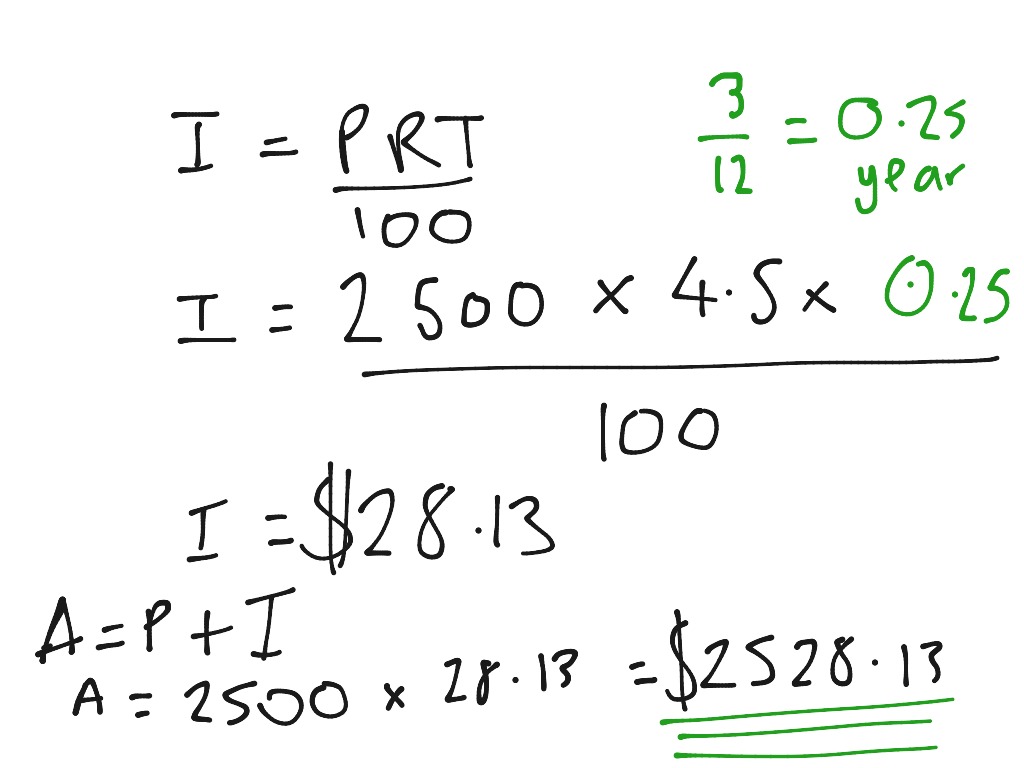 I = PRT / 100
3/12 = 0.25 year
I = 2500 × 4.5 × 0.25 / 100
I = $28.13
A = P + I
A = 2500 × 28.13 = $2528.13